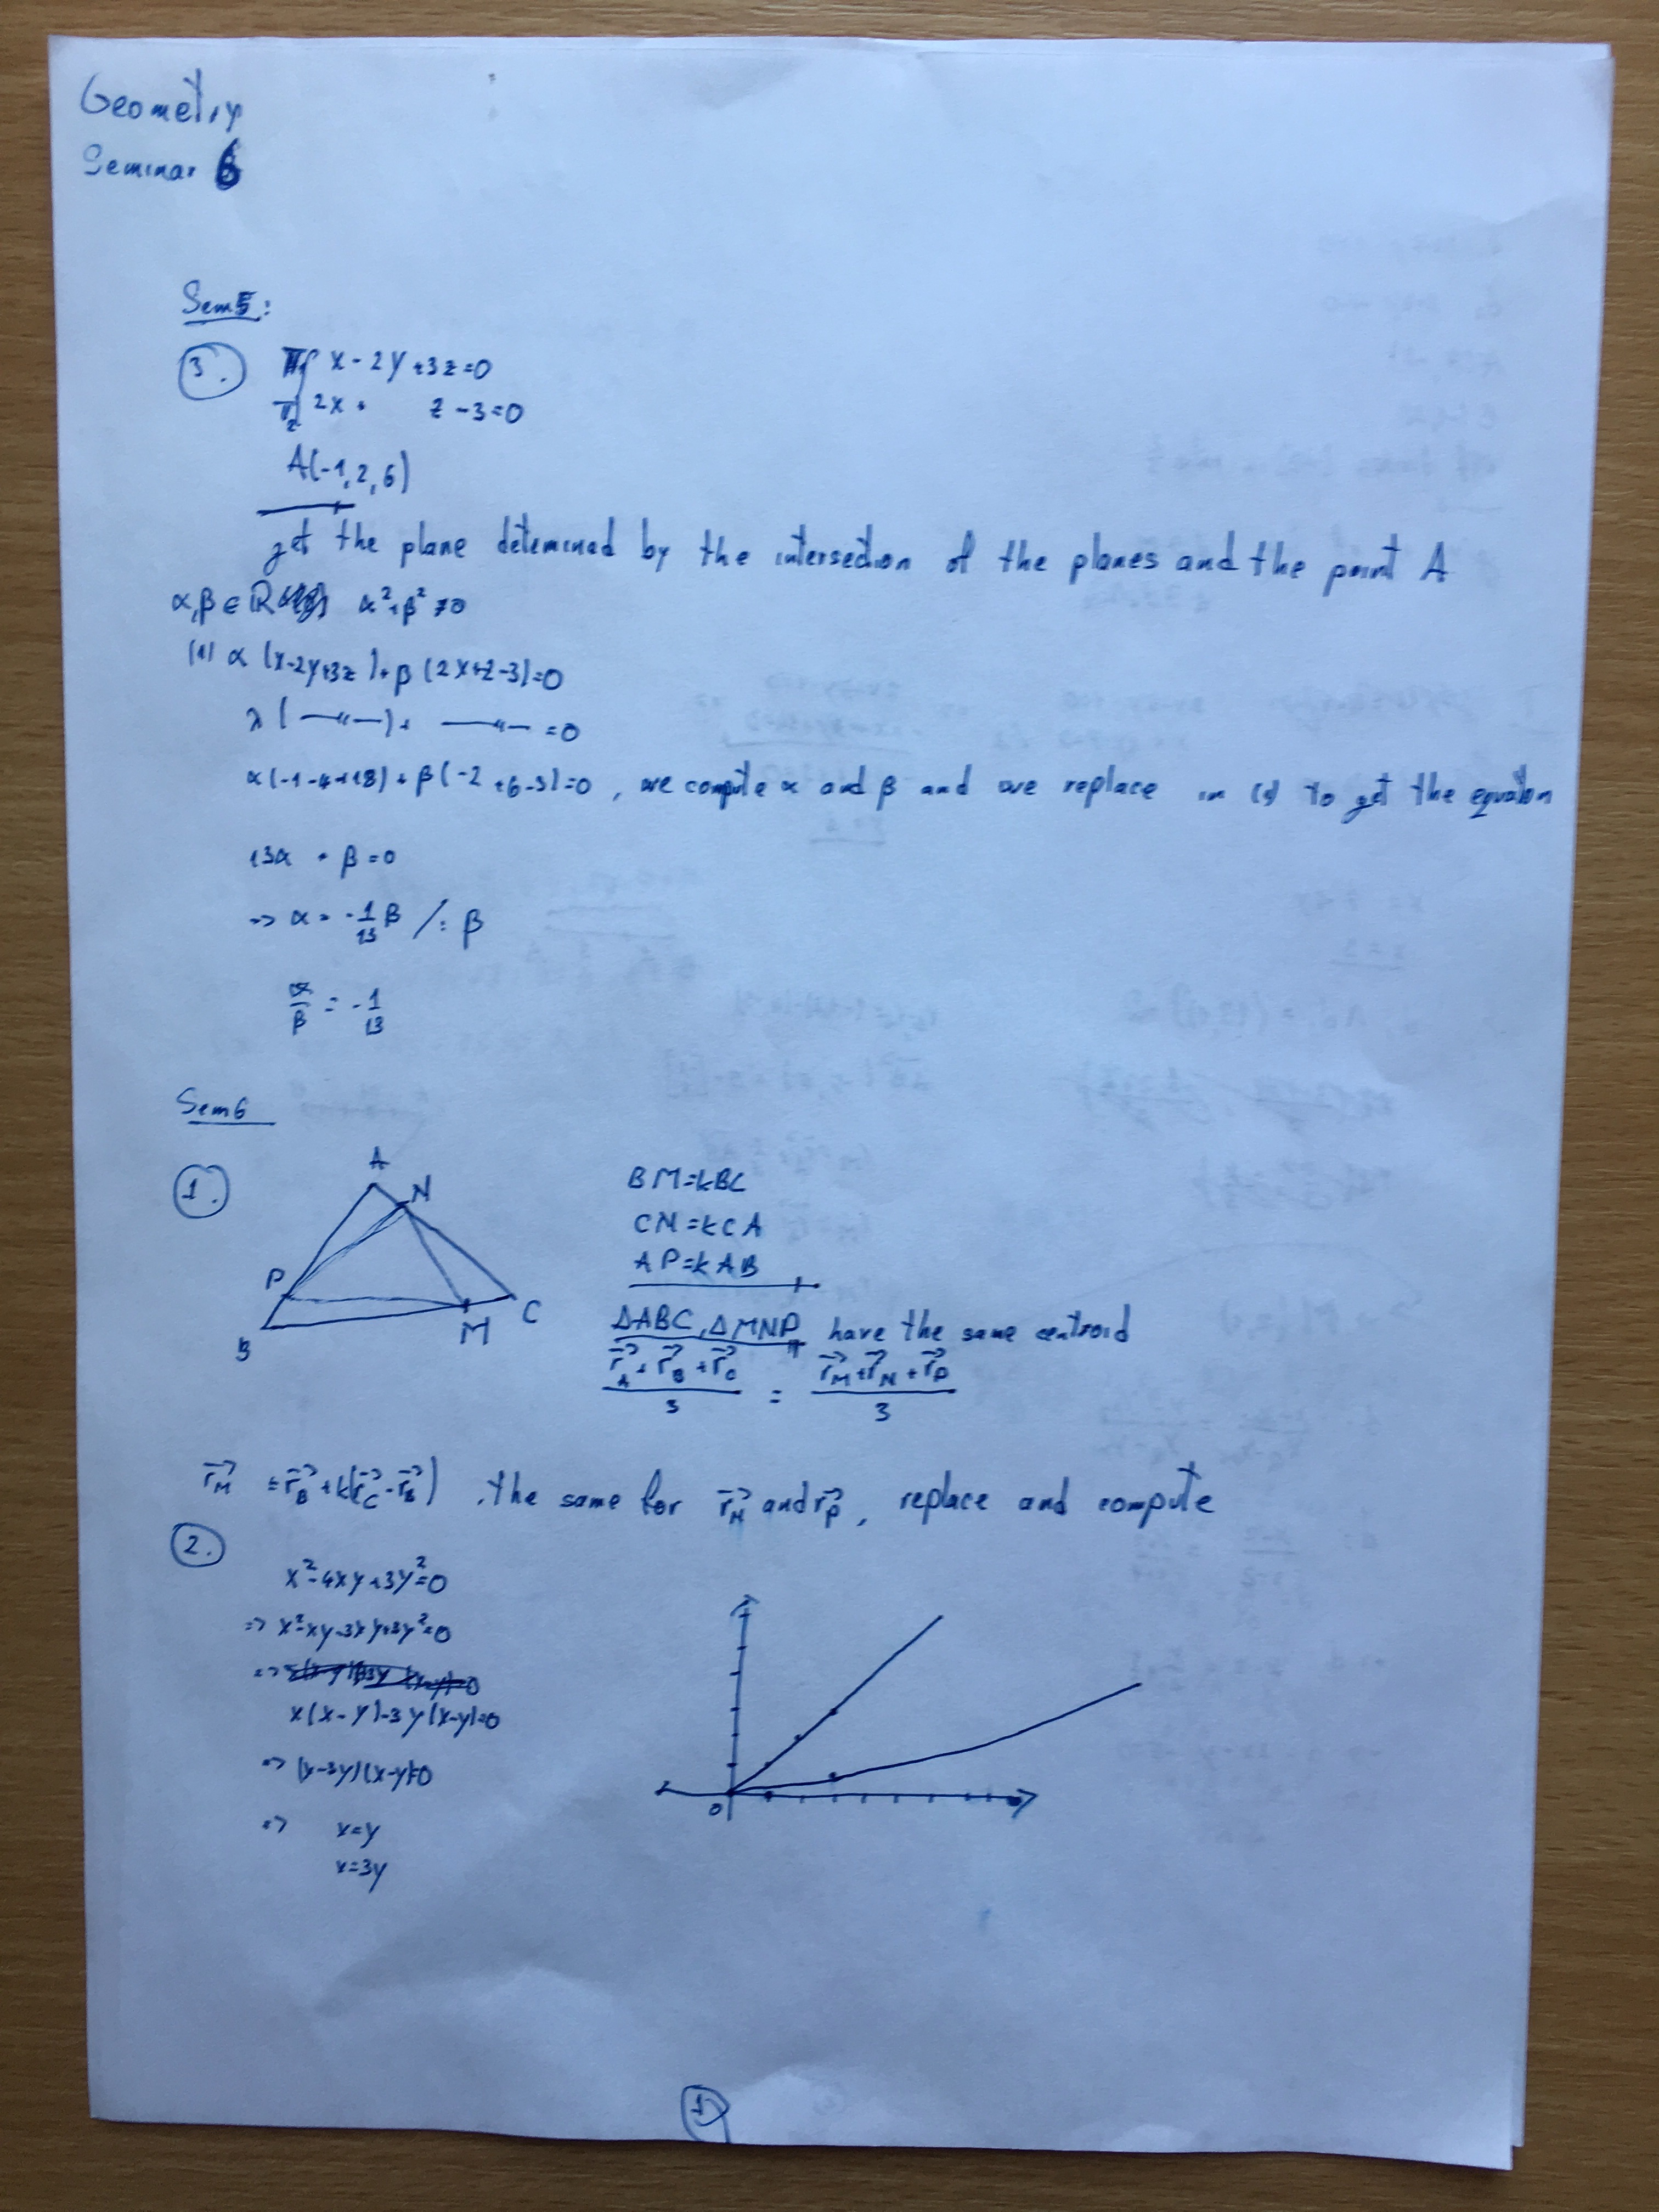 Geometry
Seminar 6
Sem 5:
3. π1 { x - 2y + 3z = 0
π2 { 2x + z - 3 = 0
A(-1, 2, 6)
get the plane detemined by the intersection of the planes and the point A
α, β ∈ ℝ α² + β² ≠ 0
(1) α (x-2y+3z) + β (2x+z-3) = 0
λ ( —"—) + —"— = 0
α(-1-4+18) + β(-2+6-3) = 0, we compute α and β and we replace in (1) to get the equation
13α + β = 0
=> α = -1/13 β / : β
α/β = -1/13
Sem 6
1.
A
N
P
B
M
C
BM = kBC
CN = kCA
AP = kAB
ΔABC, ΔMNP have the same centroid
(r⃗A + r⃗B + r⃗C)/3 = (r⃗M + r⃗N + r⃗P)/3
r⃗M = r⃗B + k(r⃗C - r⃗B), the same for r⃗N and r⃗P, replace and compute
2.
x² - 4xy + 3y² = 0
=> x² - xy - 3xy + 3y² = 0
=>
x(x-y) - 3y(x-y) = 0
=> (x-3y)(x-y) = 0
=> x = y
x = 3y
0
1